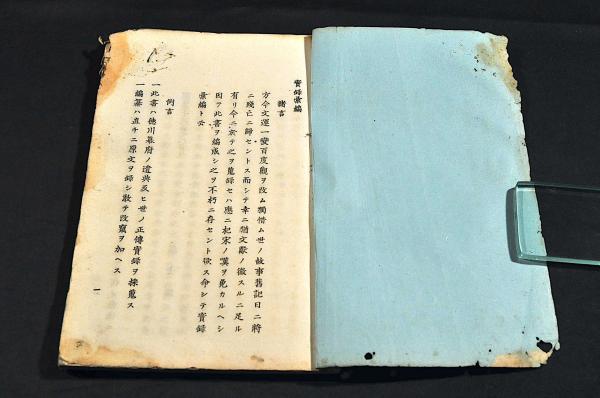 實録彙編
緒言
方今文運一變百度觀ヲ改ム獨惜ム世ノ故事舊記日ニ將
ニ殘亡ニ歸セントス而シテ幸ニ猶文獻ノ徴スルニ足ル
有リ今ニ於テ之ヲ蒐録セハ應ニ杞宋ノ嘆ヲ免カルヘシ
因テ此書ヲ編成シ之ヲ不朽ニ存セント欲ス命シテ實録
彙編ト云
例言
一此書ハ徳川幕府ノ遺典及ヒ世ノ正傳實録ヲ採蒐ス
一編纂ハ直チニ原文ヲ録シ敢テ改竄ヲ加ヘス
一